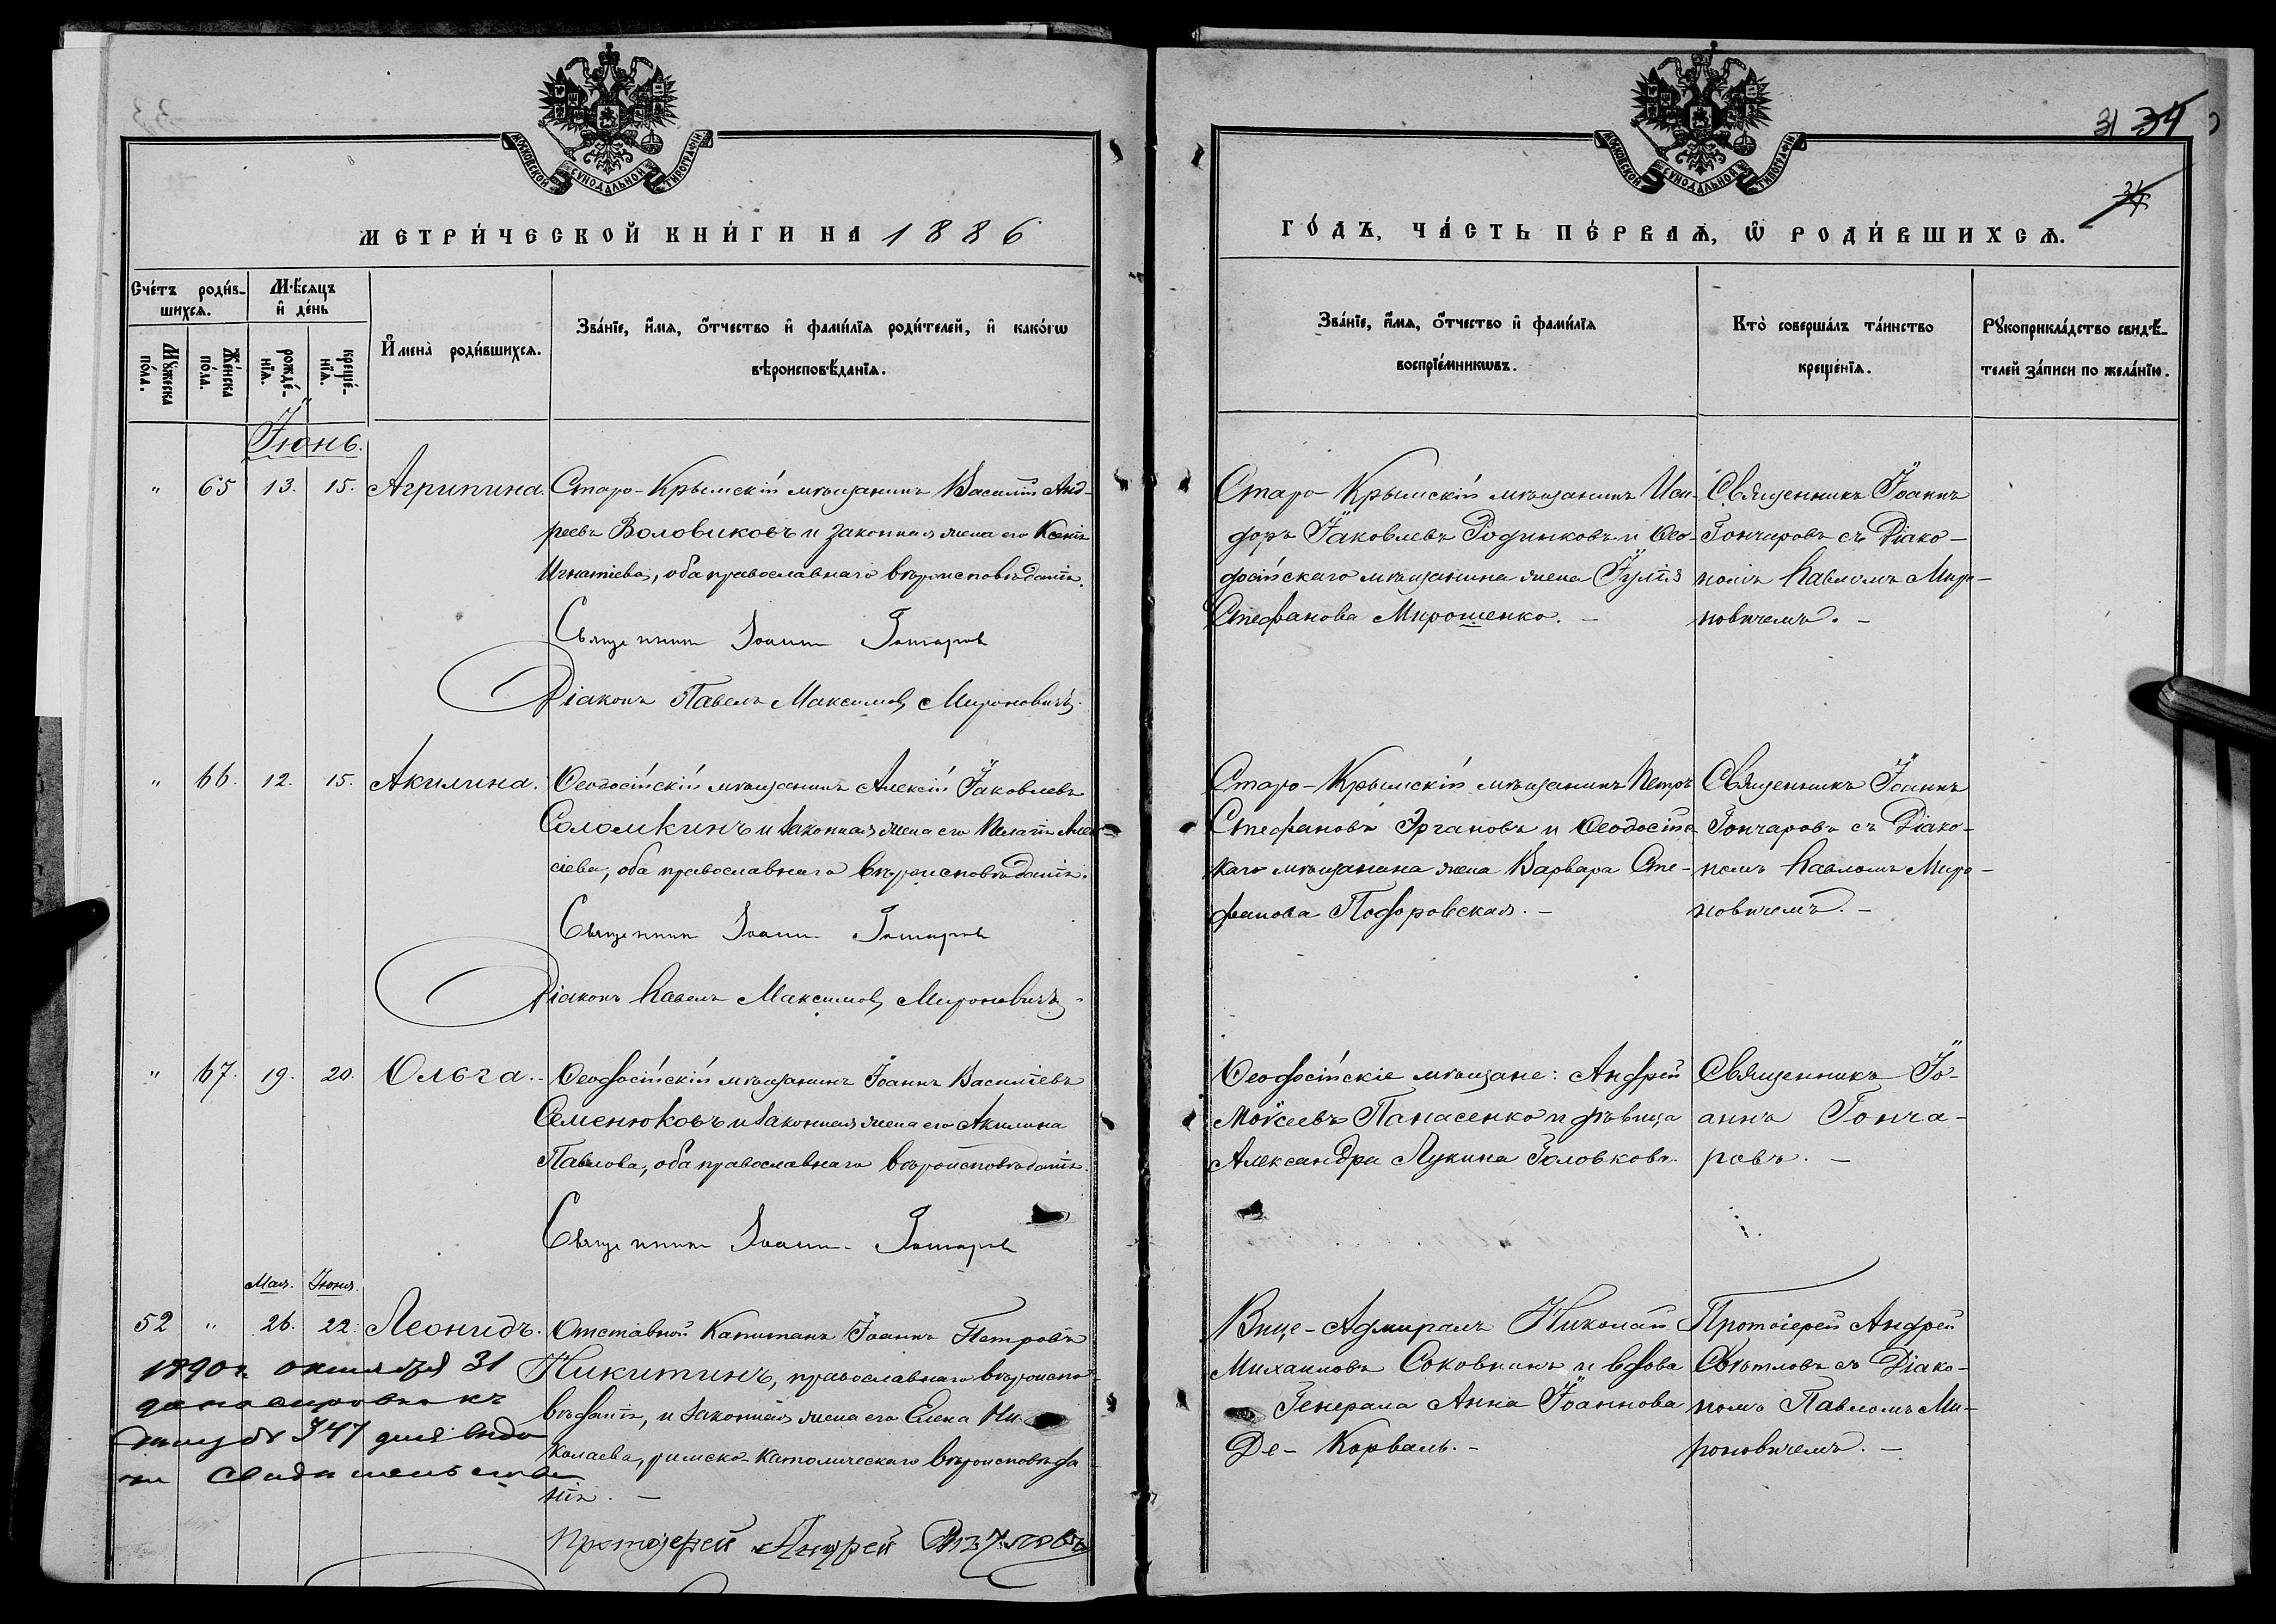 31 34
34
МОСКОВСКОЙ СѴНОДАЛЬНОЙ ТИПОГРАФІИ
МОСКОВСКОЙ СѴНОДАЛЬНОЙ ТИПОГРАФІИ
МЕТРИ́ЧЕСКОЙ КНИ́ГИ НА 1886
ГО́ДЪ, ЧА́СТЬ ПЕ́РВАѦ, Ѽ РОДИ́ВШИХСѦ.
Сче́тъ роди́в-
шихсѧ.
Мѣ́сѧцъ
и҆ де́нь
Мꙋ́жеска по́ла.
Же́нска по́ла.
рожде́-нїѧ.
креще́-нїѧ.
И҆мена̀ роди́вшихсѧ.
Зва́нїе, и҆́мѧ, ѻ҆́тчество и҆ фами́лїѧ роди́телей, и҆ како́гѡ
вѣроисповѣ́данїѧ.
Зва́нїе, и҆́мѧ, ѻ҆́тчество и҆ фами́лїѧ
воспрїе́мникѡвъ.
Кто̀ соверша́лъ та́инство
креще́нїѧ.
Рꙋкоприкла́дство свидѣ́-
телей за́писи по жела́нїю.
Іюнь.
" 65 13. 15. Агрипина. Старо-Крымскій мѣщанинъ Василій Анд-
реевъ Воловиковъ и законная жена его Ксенія
Игнатіева, оба православнаго вѣроисповѣданія.
Священникъ Іоаннъ Гончаровъ
Діаконъ Павелъ Максимовъ Мироновичъ.
Старо-Крымскій мѣщанинъ Иси-
доръ Іаковлевъ Родинковъ и Ѳео-
досійскаго мѣщанина жена Іулія
Стефанова Мирошенко. –
Священникъ Іоаннъ
Гончаровъ съ Діако-
номъ Павломъ Миро-
новичемъ. –
" 66. 12. 15. Акилина. Ѳеодосійскій мѣщанинъ Алексій Іаковлевъ
Соломкинъ и законная жена его Пелагія Алек-
сіева, оба православнаго вѣроисповѣданія.
Священникъ Іоаннъ Гончаровъ
Діаконъ Павелъ Максимовъ Мироновичъ.
Старо-Крымскій мѣщанинъ Петръ
Стефановъ Эргановъ и Ѳеодосійс-
каго мѣщанина жена Варвара Сте-
фанова Подоровская. –
Священникъ Іоаннъ
Гончаровъ съ Діако-
номъ Павломъ Миро-
новичемъ. –
" 67. 19. 20. Ольга. Ѳеодосійскій мѣщанинъ Іоаннъ Василіевъ
Семенюковъ и законная жена его Акилина
Павлова, оба православнаго вѣроисповѣданія.
Священникъ Іоаннъ Гончаровъ
Ѳеодосійскіе мѣщане: Андрей
Моѵсеевъ Панасенко и дѣвица
Александра Лукина Головковъ.
Священникъ Іо-
аннъ Гонча-
ровъ. –
Мая. Іюня.
52 " 26. 22. Леонидъ. Отставной Капитанъ Іоаннъ Петровъ
Никитинъ, православнаго вѣроиспо-
вѣданія, и законная жена его Елена Ни-
колаева, римско-католическаго вѣроисповѣда-
нія. –
Протоіерей Андрей Свѣтловъ
1890 г. октября 31
347 для выда
чи свидѣтельства
Вице-Адмиралъ Николай
Михаиловъ Соковнинъ и вдова
Генерала Анна Іоаннова
Де-Корваль. –
Протоіерей Андрей
Свѣтловъ съ Діако-
номъ Павломъ Ми-
роновичемъ. –